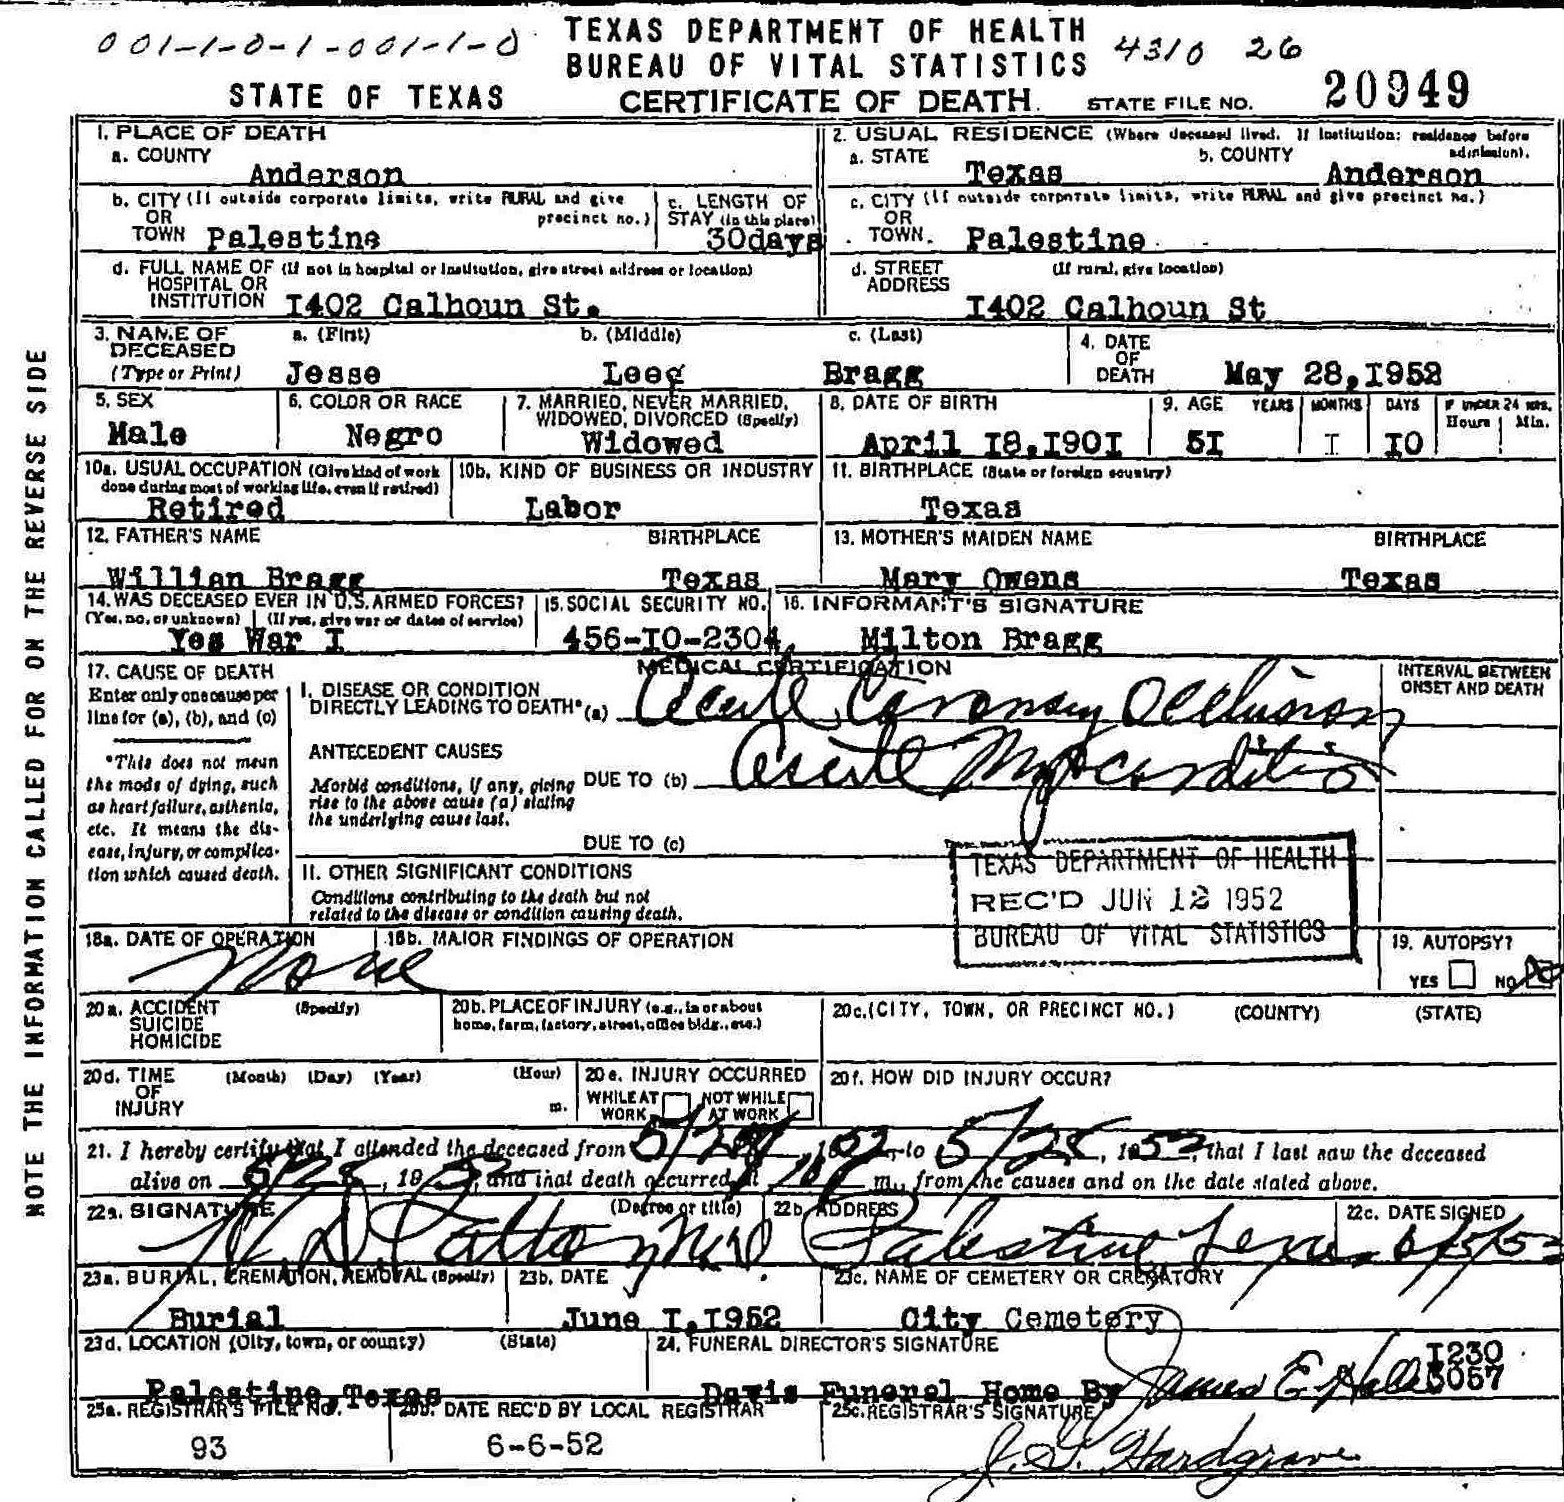 001-1-0-1-001-1-0
TEXAS DEPARTMENT OF HEALTH
BUREAU OF VITAL STATISTICS
4310 26
STATE OF TEXAS
CERTIFICATE OF DEATH
STATE FILE NO. 20949
NOTE THE INFORMATION CALLED FOR ON THE REVERSE SIDE
1. PLACE OF DEATH
a. COUNTY
Anderson
2. USUAL RESIDENCE (Where deceased lived. If institution: residence before admission).
a. STATE
Texas
b. COUNTY
Anderson
b. CITY (If outside corporate limits, write RURAL and give precinct no.)
OR
TOWN Palestine
c. LENGTH OF STAY (in this place)
30days
c. CITY (If outside corporate limits, write RURAL and give precinct no.)
OR
TOWN. Palestine
d. FULL NAME OF (If not in hospital or institution, give street address or location)
HOSPITAL OR
INSTITUTION I402 Calhoun St.
d. STREET (If rural, give location)
ADDRESS
I402 Calhoun St
3. NAME OF DECEASED
(Type or Print)
a. (First)
Jesse
b. (Middle)
Lee
c. (Last)
Bragg
4. DATE OF DEATH
May 28,I952
5. SEX
Male
6. COLOR OR RACE
Negro
7. MARRIED, NEVER MARRIED, WIDOWED, DIVORCED (Specify)
Widowed
8. DATE OF BIRTH
April I8,I90I
9. AGE YEARS MONTHS DAYS IF UNDER 24 HRS. Hours Min.
5I I I0
10a. USUAL OCCUPATION (Give kind of work done during most of working life, even if retired)
Retired
10b. KIND OF BUSINESS OR INDUSTRY
Labor
11. BIRTHPLACE (State or foreign country)
Texas
12. FATHER'S NAME BIRTHPLACE
Willian Bragg Texas
13. MOTHER'S MAIDEN NAME BIRTHPLACE
Mary Owens Texas
14. WAS DECEASED EVER IN U.S. ARMED FORCES?
(Yes, no, or unknown) (If yes, give war or dates of service)
Yes War I
15. SOCIAL SECURITY NO.
456-I0-2304
16. INFORMANT'S SIGNATURE
Milton Bragg
17. CAUSE OF DEATH
Enter only one cause per line for (a), (b), and (c)
*This does not mean the mode of dying, such as heart failure, asthenia, etc. It means the disease, injury, or complication which caused death.
MEDICAL CERTIFICATION
INTERVAL BETWEEN ONSET AND DEATH
I. DISEASE OR CONDITION
DIRECTLY LEADING TO DEATH* (a) Acute Coronary Occlusion
ANTECEDENT CAUSES
Morbid conditions, if any, giving rise to the above cause (a) stating the underlying cause last.
DUE TO (b) Acute Myocarditis
DUE TO (c)
II. OTHER SIGNIFICANT CONDITIONS
Conditions contributing to the death but not related to the disease or condition causing death.
TEXAS DEPARTMENT OF HEALTH
REC'D JUN 12 1952
BUREAU OF VITAL STATISTICS
18a. DATE OF OPERATION
None
18b. MAJOR FINDINGS OF OPERATION
19. AUTOPSY?
YES NO
20a. ACCIDENT (Specify)
SUICIDE
HOMICIDE
20b. PLACE OF INJURY (e.g., in or about home, farm, factory, street, office bldg., etc.)
20c. (CITY, TOWN, OR PRECINCT NO.) (COUNTY) (STATE)
20d. TIME (Month) (Day) (Year) (Hour)
OF
INJURY m.
20e. INJURY OCCURRED
WHILE AT WORK NOT WHILE AT WORK
20f. HOW DID INJURY OCCUR?
21. I hereby certify that I attended the deceased from 5/28, 1952, to 5/28, 1952, that I last saw the deceased
alive on 5/28, 1952, and that death occurred at m., from the causes and on the date stated above.
22a. SIGNATURE (Degree or title)
Patton M.D.
22b. ADDRESS
Palestine Texas
22c. DATE SIGNED
6/5/52
23a. BURIAL, CREMATION, REMOVAL (Specify)
Burial
23b. DATE
June I,I952
23c. NAME OF CEMETERY OR CREMATORY
City Cemetery
23d. LOCATION (City, town, or county) (State)
Palestine,Texas
24. FUNERAL DIRECTOR'S SIGNATURE
Davis Funeral Home By James E. I230
25a. REGISTRAR'S FILE NO.
93
25b. DATE REC'D BY LOCAL REGISTRAR
6-6-52
25c. REGISTRAR'S SIGNATURE
Hardgrave